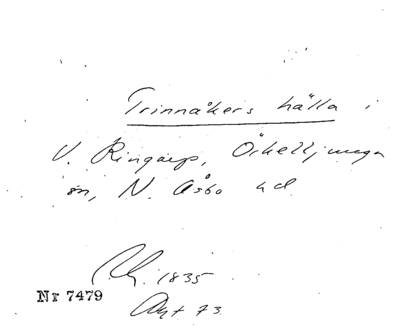 Trinnåkers hälla i
V. Ringarp, Örkelljunga
sn, N. Åsbo hd
1835
Nr 7479
Akt 73.